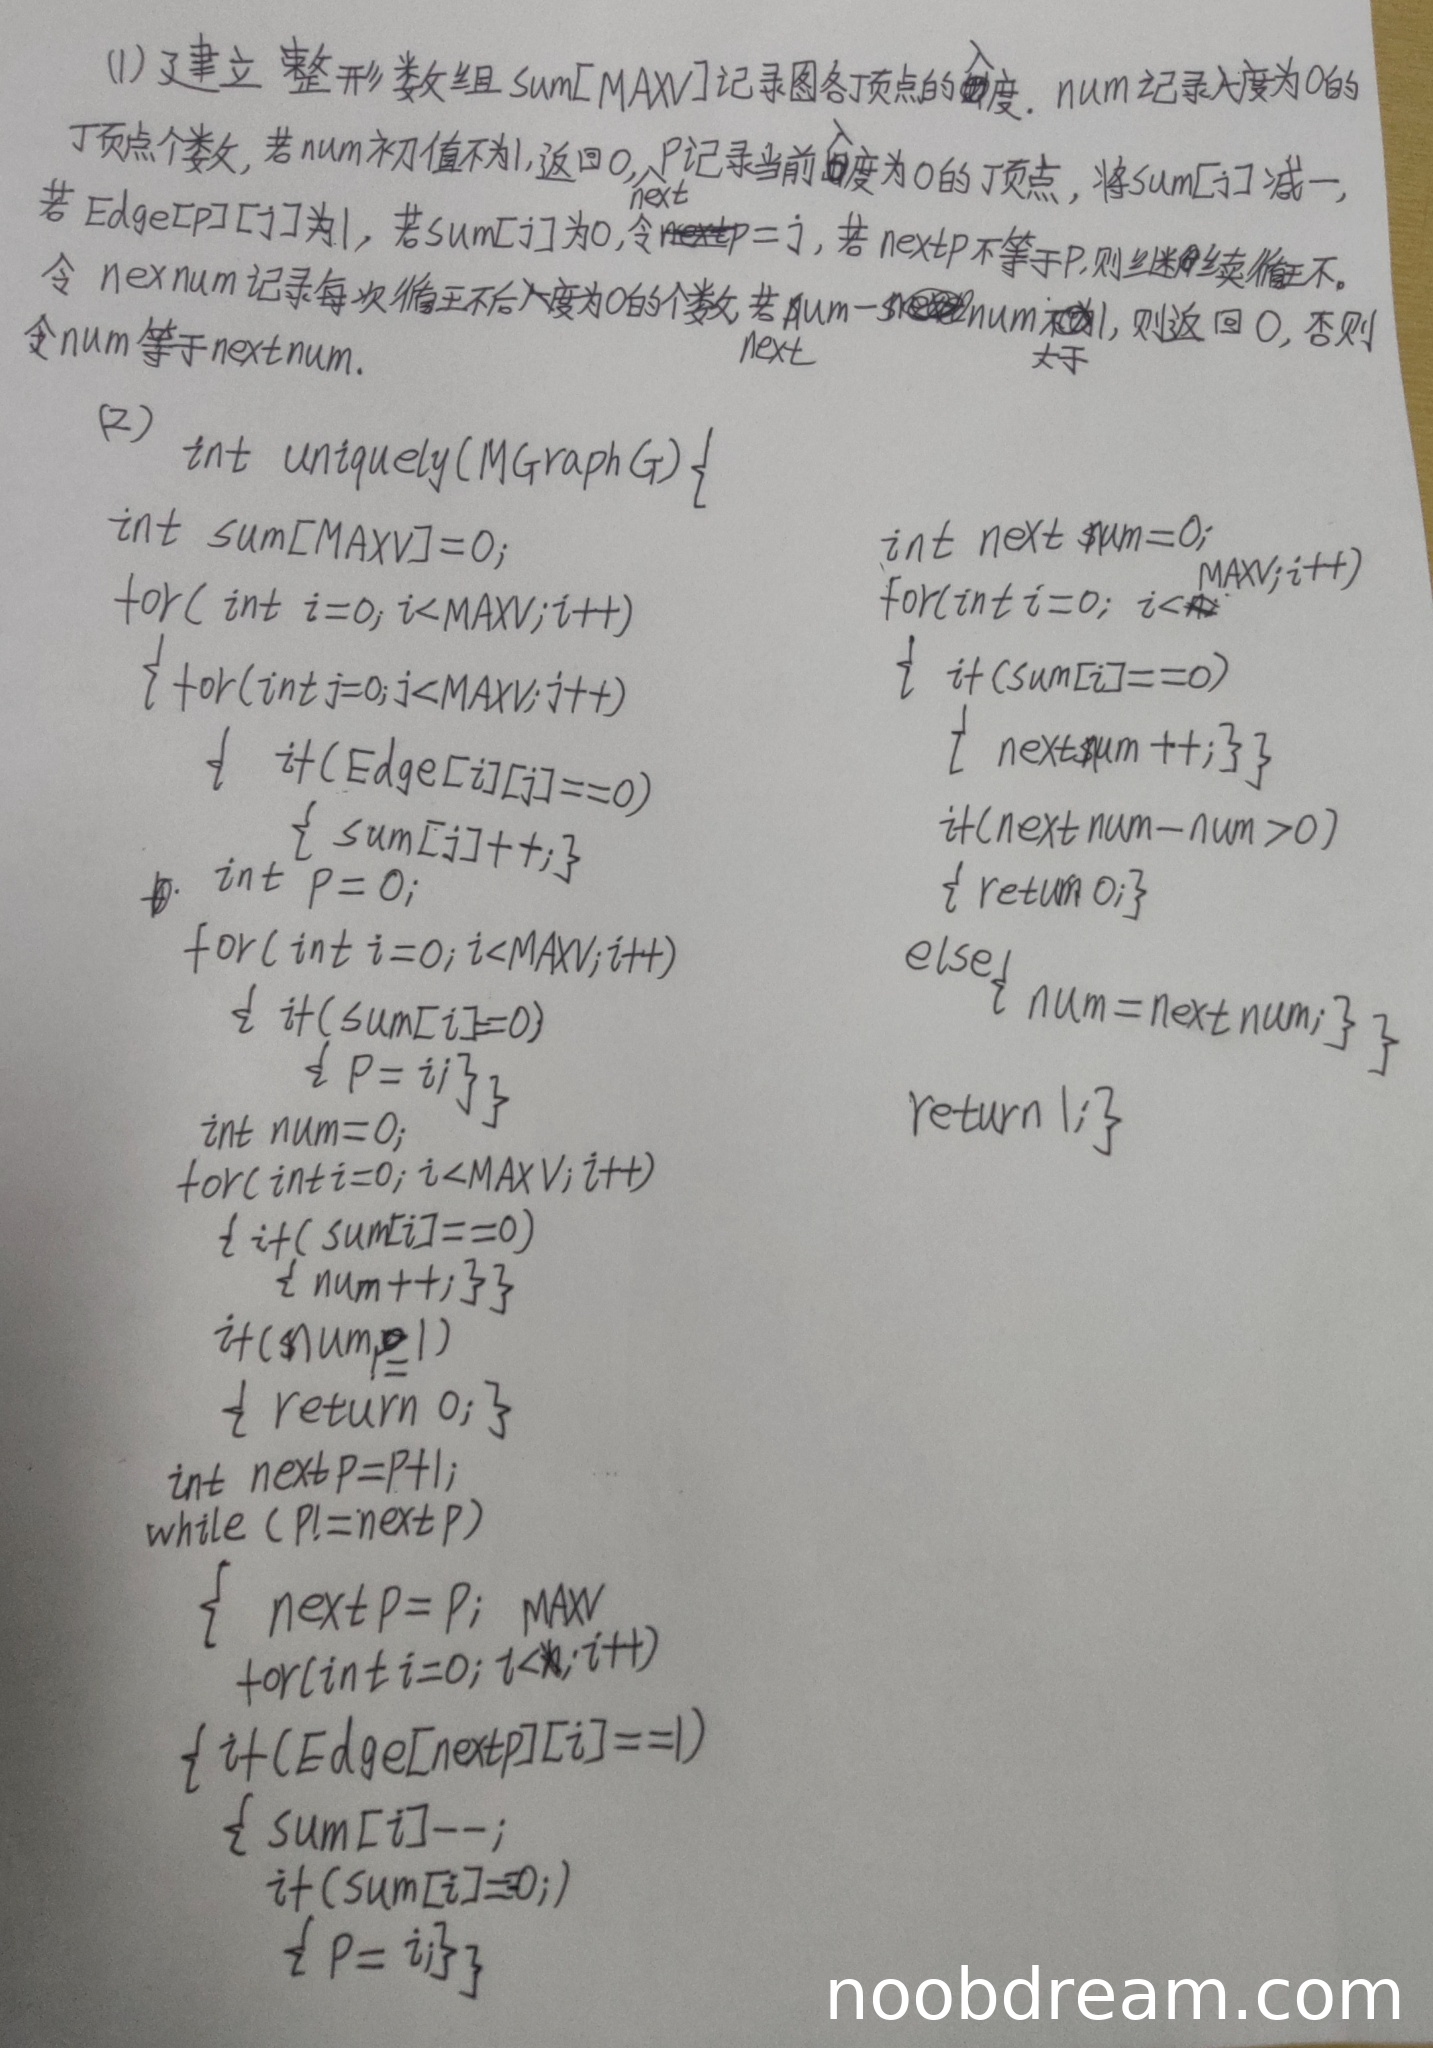 (1) 建立 整形数组 sum[MAXV]记录图各顶点的入度. num记录入度为0的
顶点个数, 若num初值不为1, 返回0, P记录当前入度为0的顶点, 将sum[j]减一,
若Edge[p][j]为1, 若sum[j]为0, 令nextp=j, 若nextp不等于P, 则继续循环.
令 nexnum记录每次循环后入度为0的个数, 若nextnum-num大于1, 则返回0, 否则
令num等于nextnum.
(2)
int uniquely(MGraph G){
int sum[MAXV]=0;
for( int i=0; i<MAXV; i++)
{for(int j=0; j<MAXV; j++)
{ if(Edge[i][j]==0)
{ sum[j]++;}
int P=0;
for(int i=0; i<MAXV; i++)
{ if(sum[i]==0)
{ P=i;}}
int num=0;
for(int i=0; i<MAXV; i++)
{if( sum[i]==0)
{ num++;}}
if(num!=1)
{ return 0;}
int nextp=P+1;
while (P!=nextp)
{ nextp=P;
for(int i=0; i<MAXV; i++)
{if(Edge[nextp][i]==1)
{ sum[i]--;
if(sum[i]==0;)
{ P=i;}}
int next num=0;
for(int i=0; i<MAXV; i++)
{ if(sum[i]==0)
{ nextnum++;}}
if(next num-num>0)
{ return 0;}
else{ num=next num;}}
return 1;}
noobdream.com